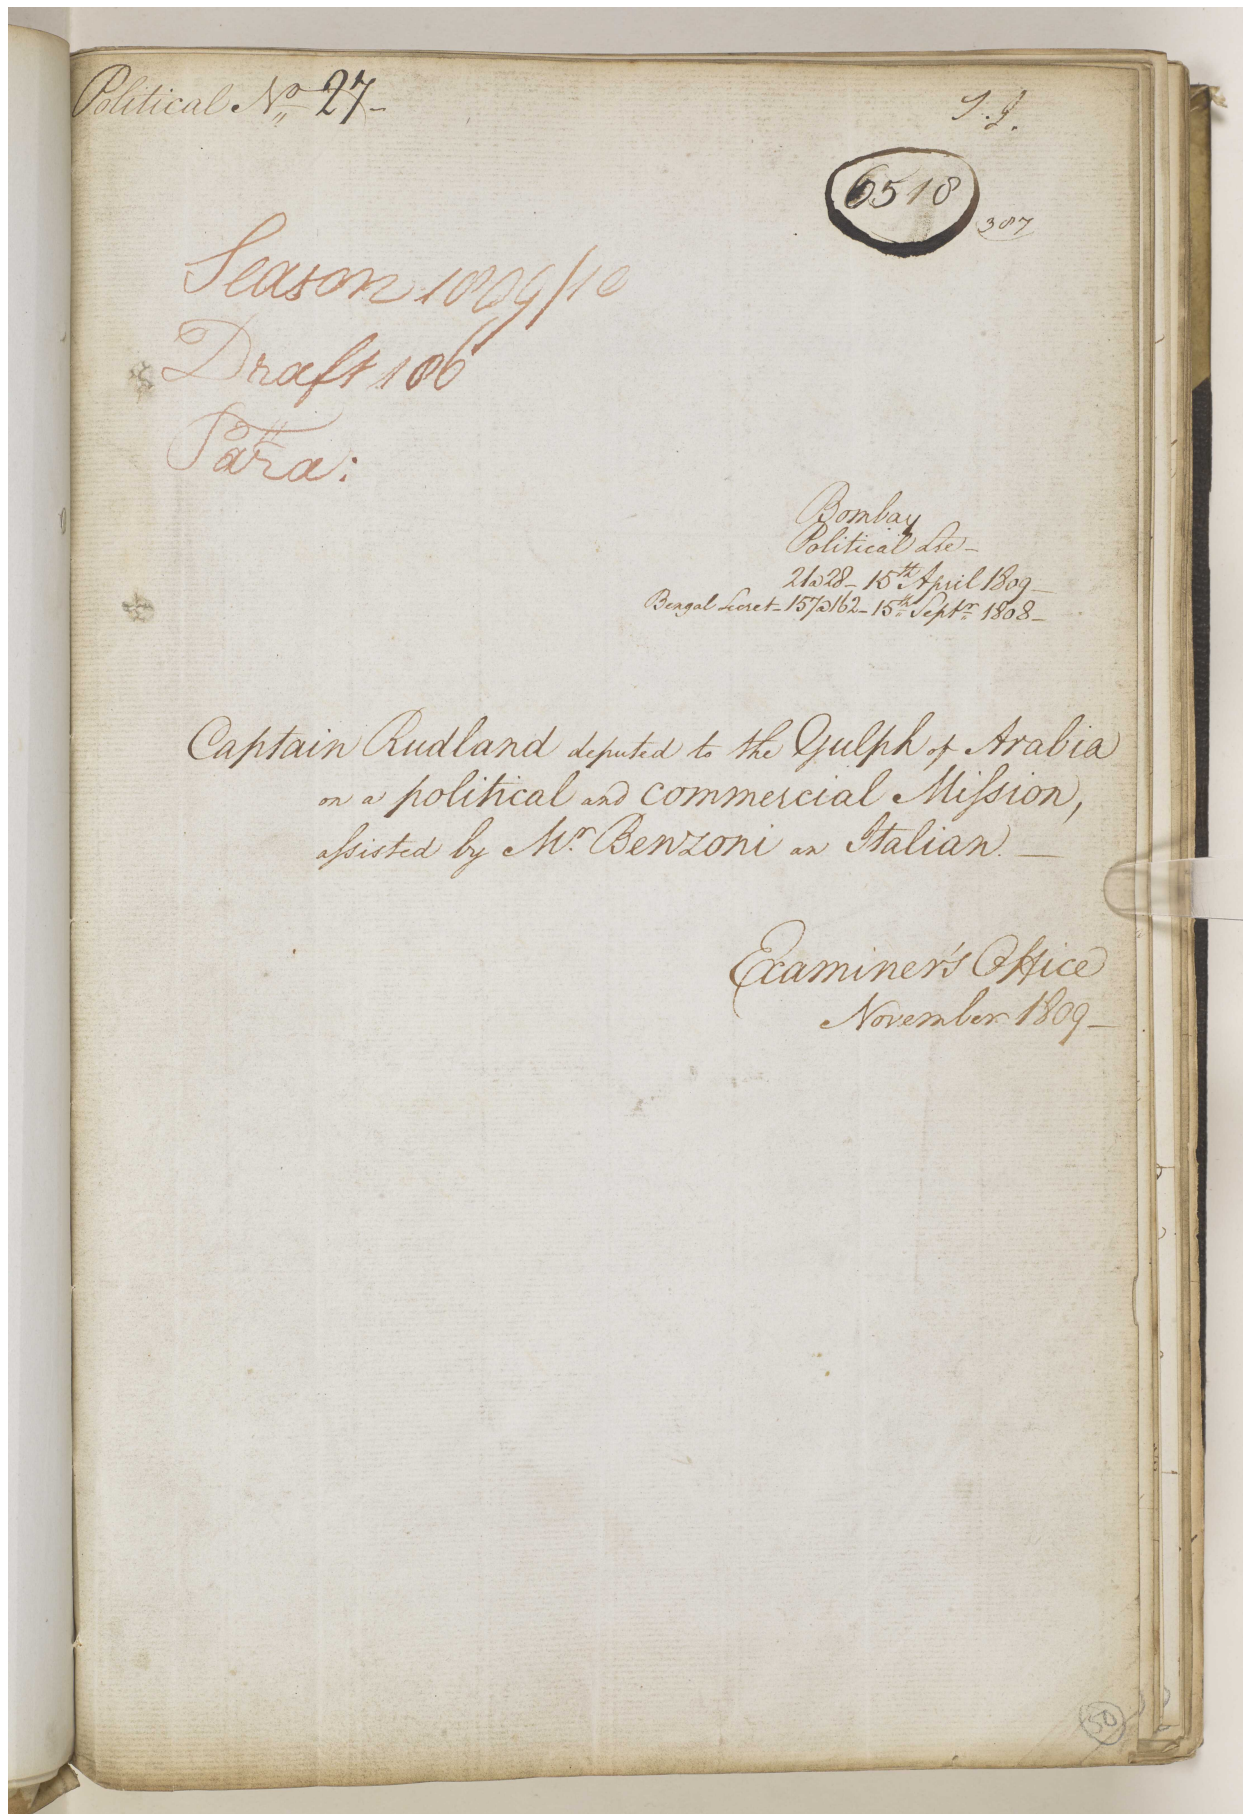 Political No. 27-
6518
387
Season 1809/10
Draft 186
Para:
Bombay
Political Lre-
21a28- 15th April 1809-
Bengal Secret- 157a162- 15th Septr 1808-
Captain Rudland deputed to the Gulph of Arabia
on a political and commercial Mission,
assisted by Mr. Benzoni an Italian.-
Examiner's Office
November 1809-
50